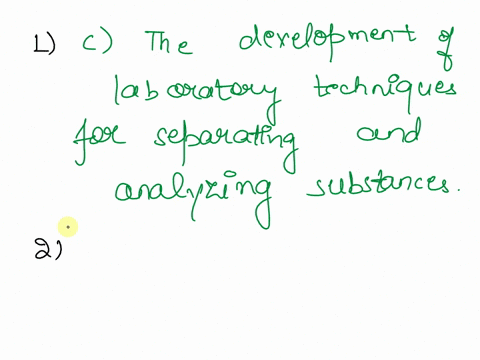 1) c) The development of
laboratory techniques
for separating and
analyzing substances.
2)